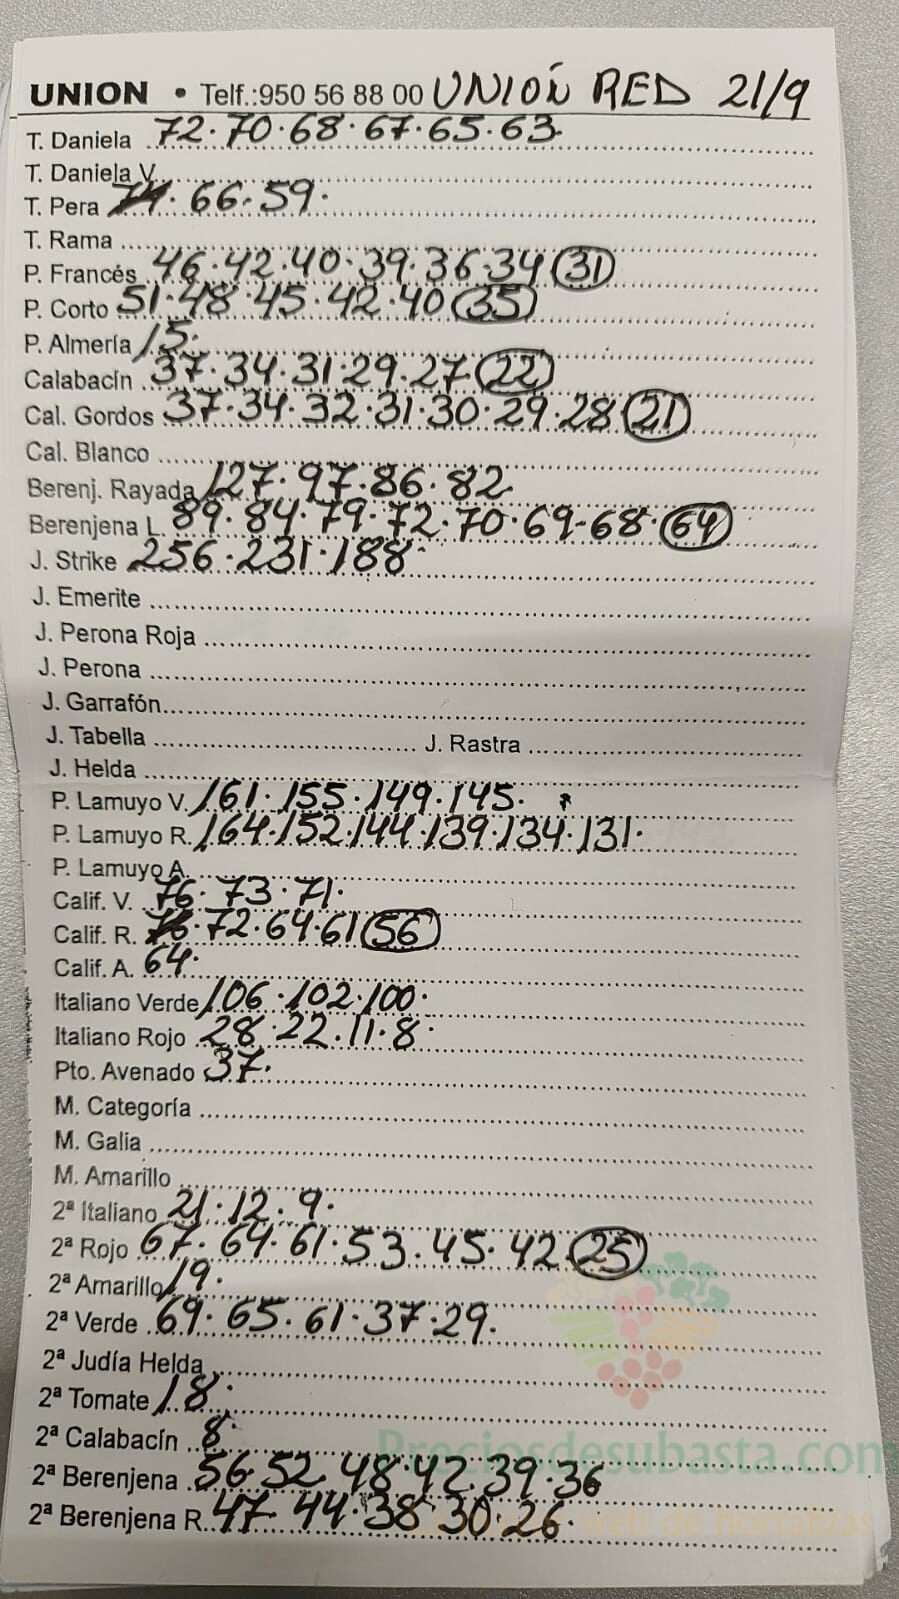 UNION • Telf.:950 56 88 00 UNIÓN RED 21/9
T. Daniela 72.70.68.67.65.63.
T. Daniela V.
T. Pera 66.59.
T. Rama
P. Francés 46.42.40.39.36.34 31
P. Corto 51.48.45.42.40 35
P. Almería 15.
Calabacín 37.34.31.29.27 22
Cal. Gordos 37.34.32.31.30.29.28 21
Cal. Blanco
Berenj. Rayada 127.97.86.82
Berenjena L. 89.84.79.72.70.69-68. 64
J. Strike 256.231.188
J. Emerite
J. Perona Roja
J. Perona
J. Garrafón
J. Tabella J. Rastra
J. Helda
P. Lamuyo V. 161.155.149.145.
P. Lamuyo R. 164.152.144.139.134.131.
P. Lamuyo A.
Calif. V. 76.73.71.
Calif. R. 72.64.61 56
Calif. A. 64.
Italiano Verde 106.102.100.
Italiano Rojo 28.22.11.8.
Pto. Avenado 37.
M. Categoría
M. Galia
M. Amarillo
2ª Italiano 21.12.9.
2ª Rojo 67.64.61.53.45.42 25
2ª Amarillo 19.
2ª Verde 69.65.61.37.29.
2ª Judía Helda
2ª Tomate 18.
2ª Calabacín 8.
Preciosdesubasta.com
2ª Berenjena 56.52.48.42.39.36
2ª Berenjena R. 47.44.38.30.26.
web de hortalizas